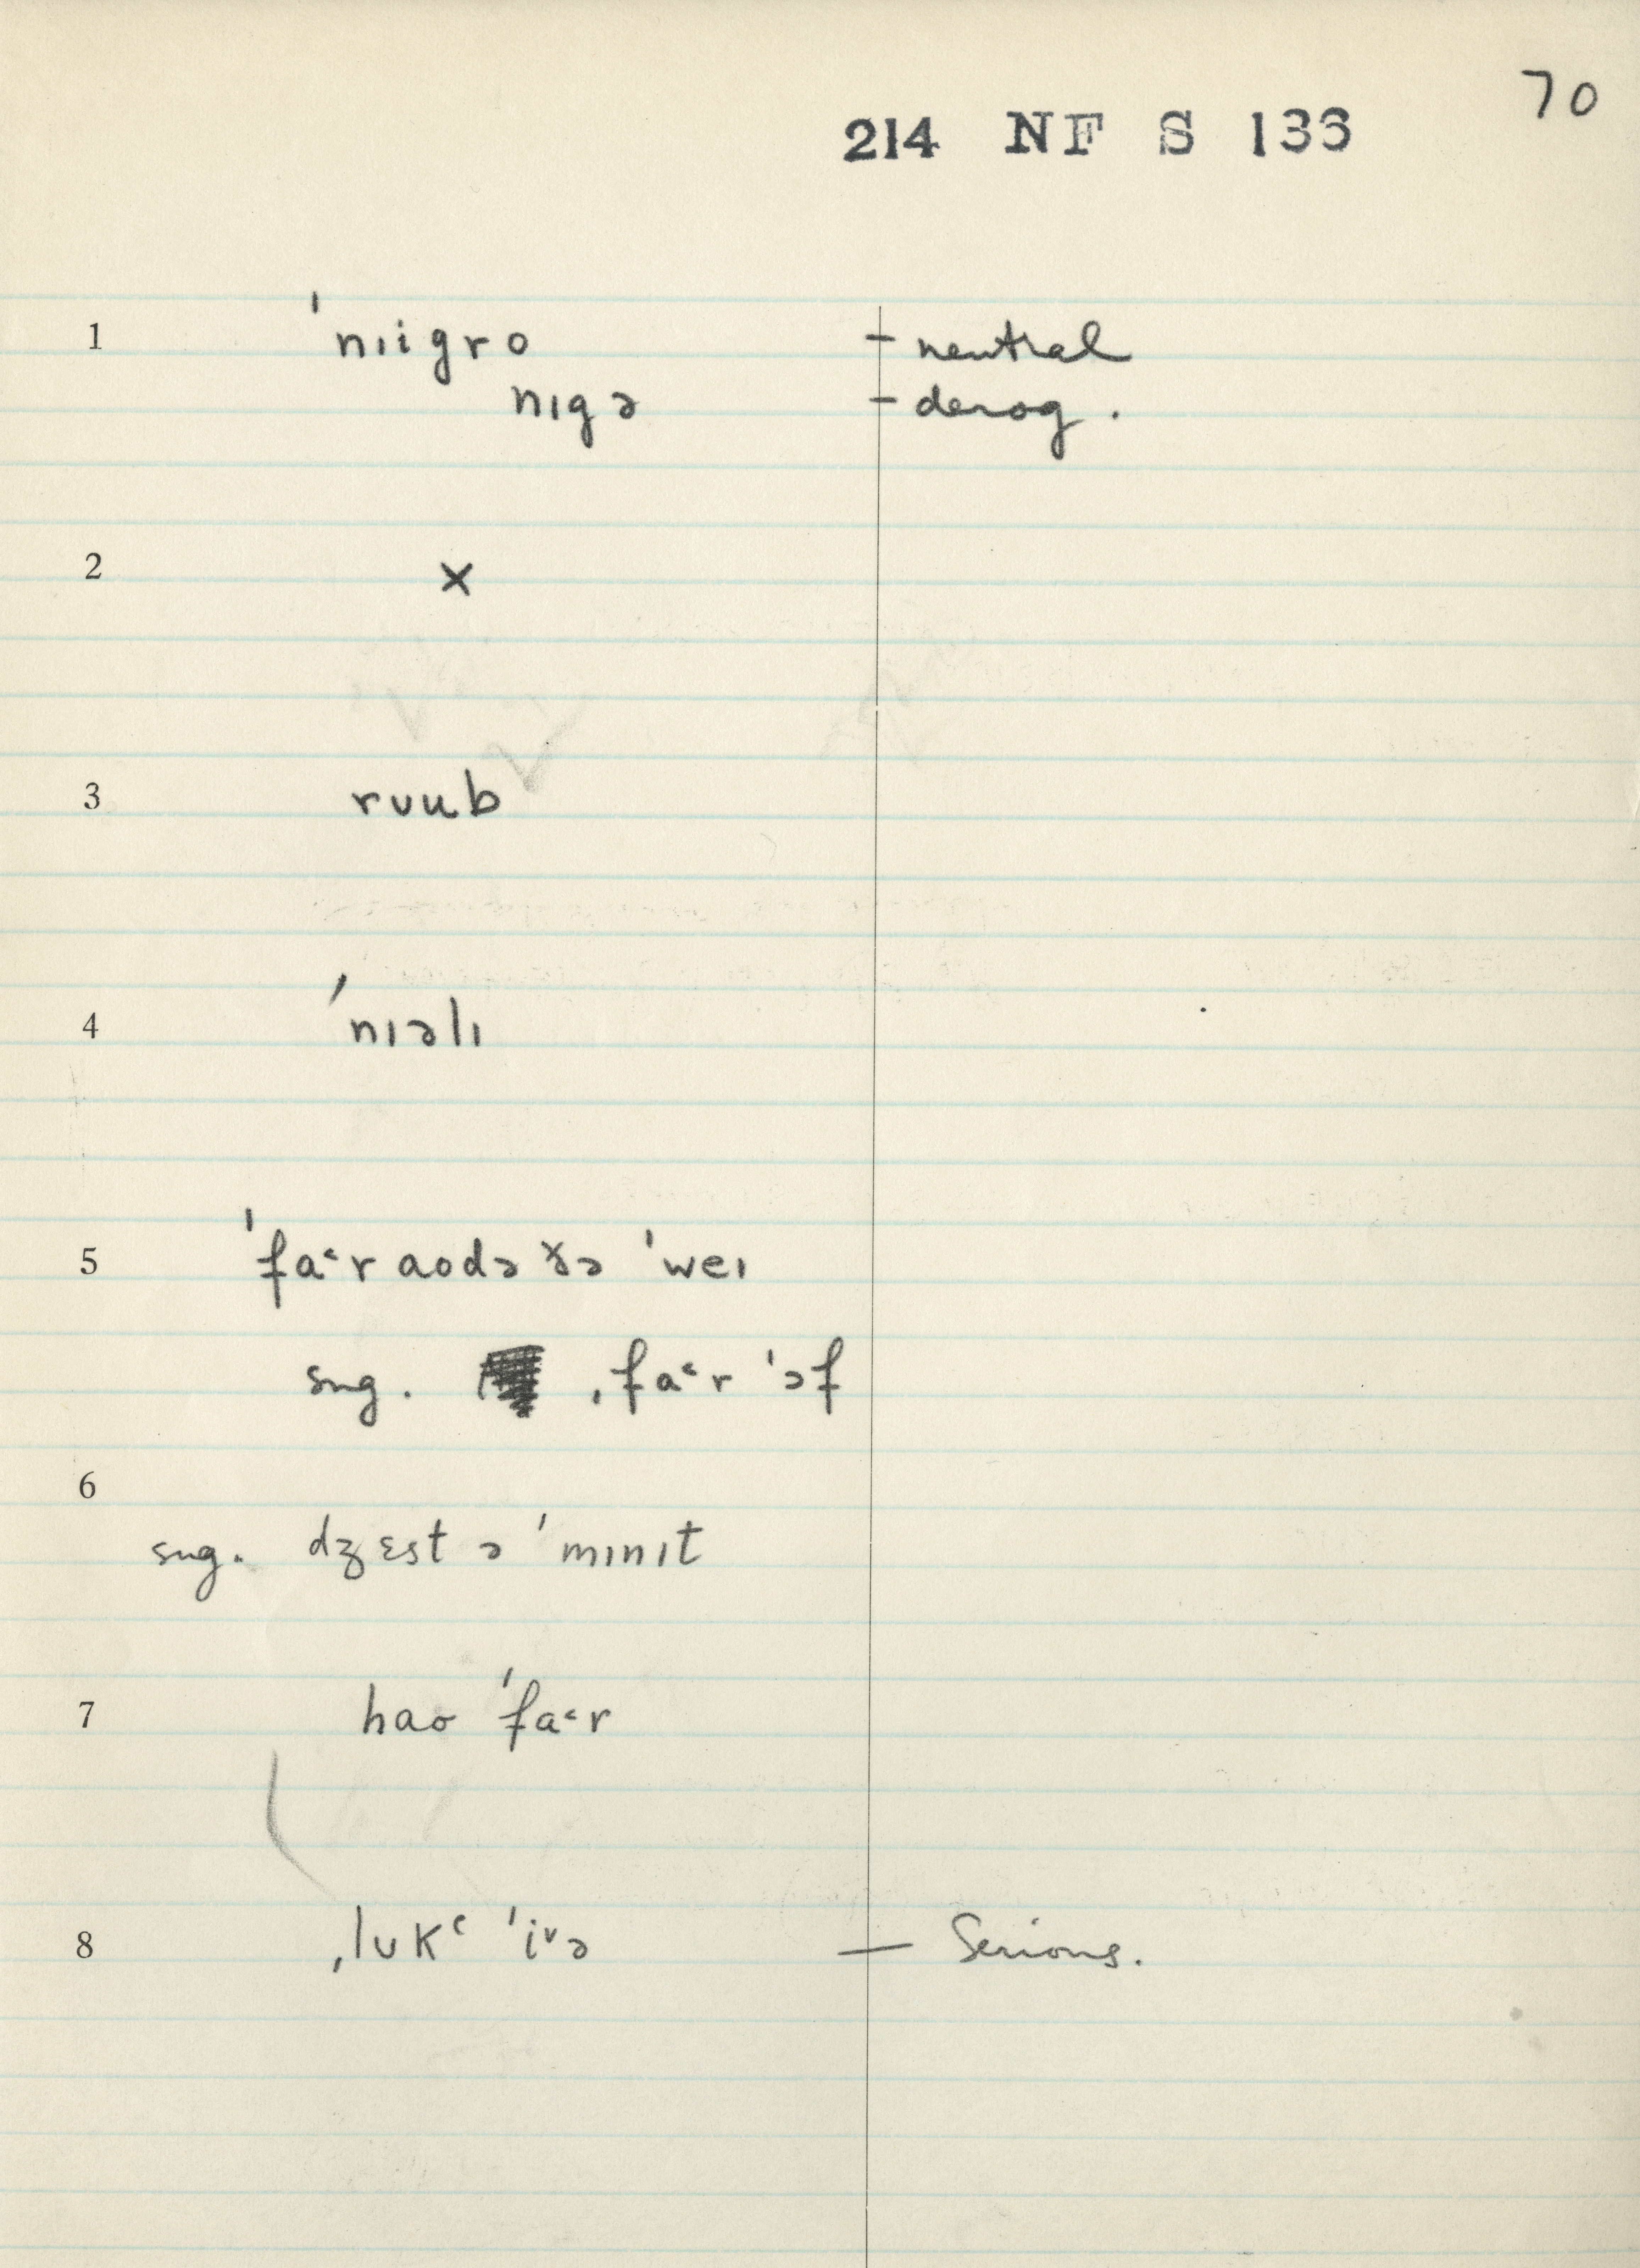 70
214 NF S 136
1 ˈnɪigro – neutral
nɪgə – derog.
2 ×
3 rʊub
4 ˈnɪəlɪ
5 ˈfa˂r aodə ðə ˈweɪ
sug. ˌfa˂r ˈɔf
6
sug. dʒɛst ə ˈmɪnɪt
7 hao ˈfa˂r
8 ˌlʊkᶜ ˈiᵛə — Serious.